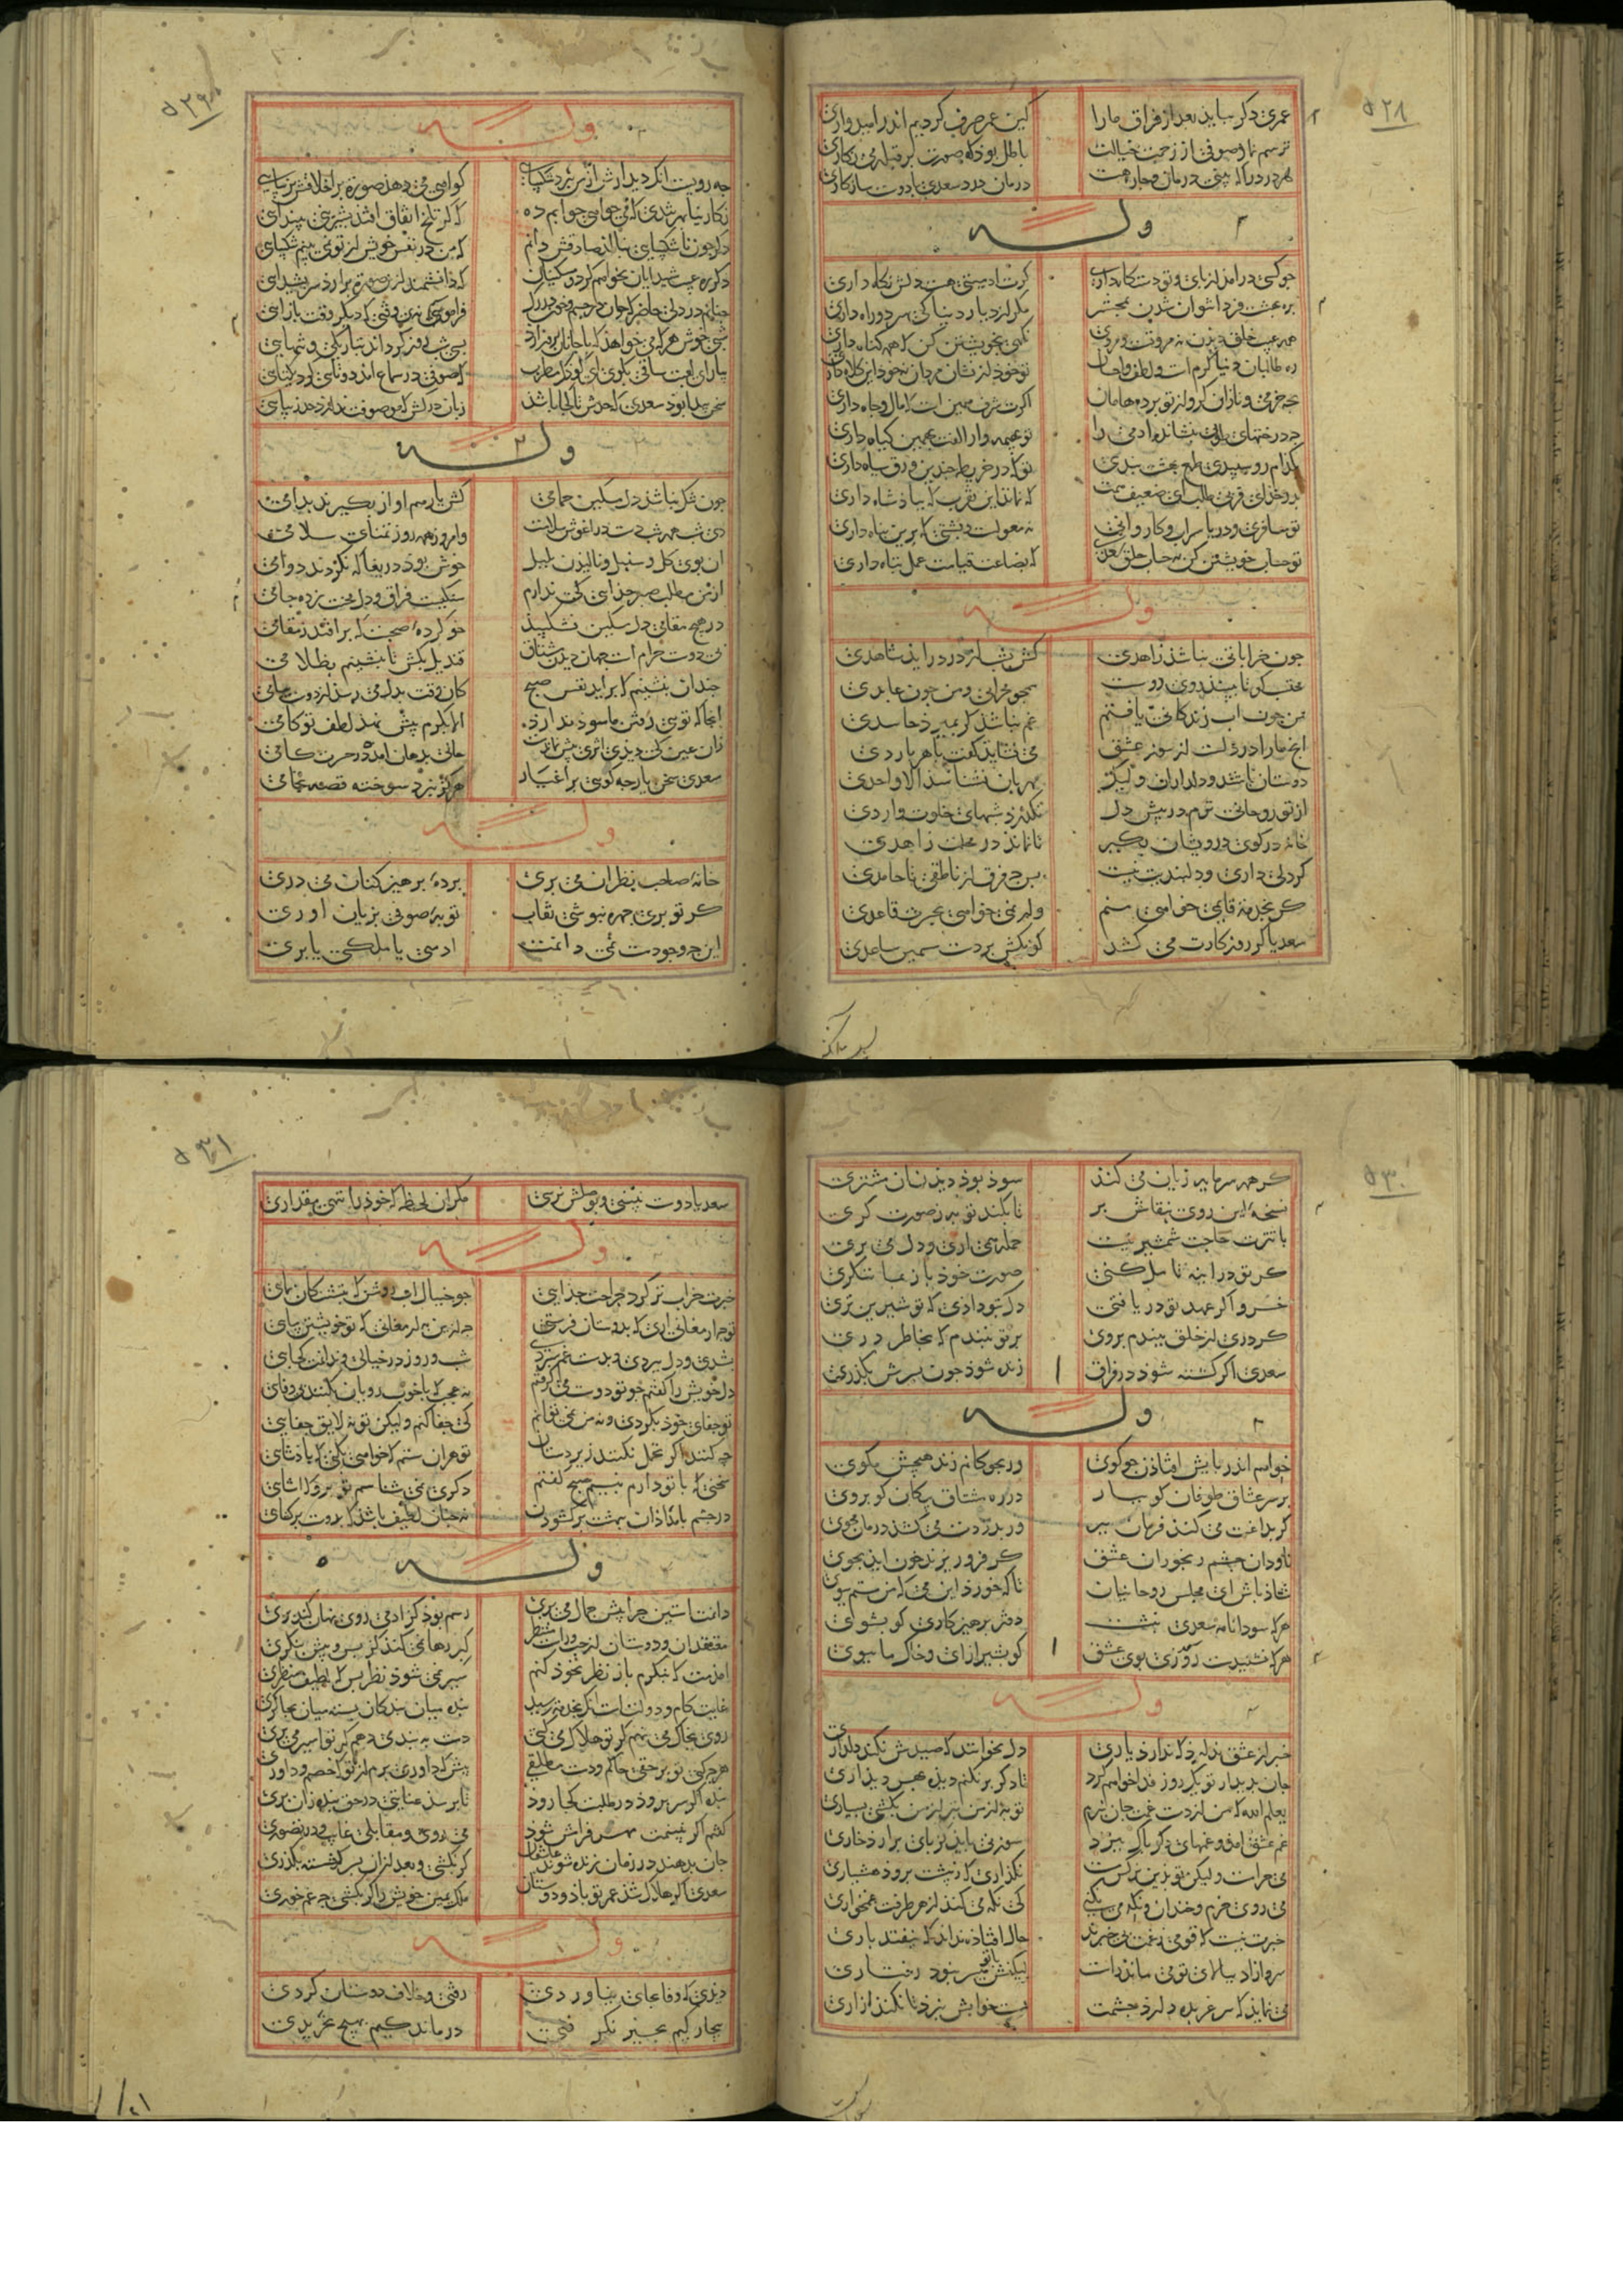 ۵۲۸
عمری دکر بباید بعد از فراق مارا کین عمر صرف کردیم اندر امیدواری
ترسم نماز صوفی از زحمت خیالت باطل بود که صورت بر قبله می نکاری
هر درد را که بینی درمان و چاره هست درمان درد سعدی با دوست سازکاری
وله
چو کسی در امد از پای و تو دستکاه داری کرت ادمیتی هست دلش نکاه داری
بره بهشت فردا نتوان شدن بمحشر مکر از دیار دنیا که سر دو راه داری
همه عیب خلق دیدن نه مروتست و مردی نکهی بخویشتن کن که همه کناه داری
ره طالبان دنیا کرم است و لطف و احسان تو خود از نشان مردان مکر این کلاه داری
چه خرمی و نازان کرو از تو برد هامان اکرت شرف همین است که مال و جاه داری
چه درختهای طوبی بنشانده ادمی را تو بهیمه وار الفت بهمین کیاه داری
بکدام روسپیدی طمع بهشت بندی تو که در خریطه چندین ورق سیاه داری
بدر خدای قربی طلب ای ضعیف همت که نماند این تقرب که بپادشاه داری
تو مسافری و دنیا سر اب و کاروانی نه معولست پشتی که برین پناه داری
تو حساب خویشتن کن نه حساب خلق سعدی که بضاعت قیامت عمل تباه داری
وله
چون خراباتی نباشد زاهدی کش بشب از در دراید شاهدی
محتسب کو تا ببیند روی دوست همچو محرابی و من چون عابدی
من چون اب زندکانی یافتم غم نباشد کر بمیرد حاسدی
انچ مارا در دلست از سوز عشق می نشاید کفت با هر باردی
دوستان باشد و دلداران ولیک مهربان نشناسد الا واحدی
از تو روحانی ترم در پیش دل نکذرد شبهای خلوت واردی
خانه در کوی درویشان بکیر تا نماند در محلت زاهدی
کر دلی داری و دلبندیت نیست پس چه فرق از ناطقی تا جامدی
کر بخدمت قایمی خواهی منم ور نمی خواهی بحسرت قاعدی
سعدیا کر روزکارت می کشد کو بکش بر دست سیمین ساعدی
۵۲۹
وله
چه رویست انکه دیدارش ببرد از من شکیبایی کواهی می دهد صورت بر اخلاقش بزیبایی
نکارینا بهر تندی که می خواهی جوابم ده که کر تلخ اتفاق افتد بشیرینی بپندای
دکر چون ناشکیبایی ببینم صادقش دانم که من در نفس خویش از تو نمی بینم شکیبایی
دکره عیب شیدایان نخواهم کرد و مسکینان که دانشمند ازین صورت برارد سر بشیدایی
چنانم در دلی حاضر که جان در جسم و خون در رک فراموشم نه وقتی که دیکر وقت باز ایی
شبی خوش هر که می خواهد که با جانان بروز ارد بسی شب روز کرداند بتاریکی و تنهایی
بیار ای لعبت ساقی بکو ای کودک مطرب که صوفی در سماع امد دوتایی کرد یکتایی
سخن پیدا بود سعدی که حدش تا کجا باشد زبان درکش که موصوفت ندارد حد زیبایی
وله
چون تنک نباشد دل مسکین حمامی کش یار هم اواز بکیرند بدامی
دی شب همه شب دست در اغوش سلامت وامروز همه روز تمنای سلامی
ان بوی کل و سنبل و نالیدن بلبل خوش بود دریغا که نکردند دوامی
از من مطلب صبر جدایی که ندارم سنکیست فراق و دل محنت زده جامی
در هیچ مقامی دل مسکین نشکیبد خو کرده صحبت که برافتد ز مقامی
بی دوست حرام است جهان دیدن مشتاق قندیل بکش تا بنشینم بظلامی
چندان بنشینم که براید نفس صبح کان وقت بدل می رسد از دوست پیامی
انجا که تویی رفتن ما سود ندارد الا بکرم پیش نهد لطف تو کامی
زان عین که دیدی اثری بیش نماندست جانی بدهان امده در حسرت کامی
سعدی سخن یار چه کویی بر اغیار هرکز نبرد سوخته قصه بخامی
وله
خانه صاحب نظران می بری پرده پرهیز کنان می دری
کر تو پری چهره نپوشی نقاب توبه صوفی بزیان اوری
این چه وجودست نمی دانمت ادمیی یا ملکی یا پری
۵۳۰
کر همه سرمایه زیان می کند سود بود دیدن ان مشتری
نسخه این روی بنقاش بر تا بکند توبه ز صورت کری
با تو ترت حاجت شمشیر نیست حمله همی اری و دل می بری
کر تو در اینه تامل کنی صورت خود باز بما ننکری
خسرو اکر عهد تو دریافتی دل بتو دادی که تو شیرین تری
کر دری از خلق ببندم بروی بر تو نبندم که بخاطر دری
سعدی اکر کشته شود در فراق زنده شود چون بسرش بکذری
وله
خواهم اندر پایش افتادن چو کوی ور بچوکانم زند هیچش مکوی
بر سر عشاق طوفان کو ببار در ره مشتاق پیکان کو بروی
کر بداغت می کند فرمان ببر ور بدردت می کشد درمان مجوی
ناودان چشم رنجوران عشق کر فرو ریزند خون اید بجوی
شاد باش ای مجلس روحانیان تا که خورد این می که من مستم ببوی
هر که سودانامه سعدی نبشت دفتر پرهیزکاری کو بشوی
هر که نشنیدست روزی بوی عشق کو بشیراز ای و خاک ما ببوی
وله
خبر از عشق ندارد که ندارد یاری دل نخوانند که صیدش نکند دلداری
جان بدیدار تو یک روز فدا خواهم کرد تا دکر بر نکنم دیده بهر دیداری
یعلم الله که من از دست غمت جان نبرم تو به از من بتر از من بکشی بسیاری
غم عشق امد و غمهای دکر پاک ببرد سوزنی باید کز پای برارد خاری
می حرامست ولیکن تو بدین نرکس مست نکذاری که ز پیشت برود هشیاری
می روی خرم و خندان و نکه می نکنی که نکه می کند از هر طرفت غمخواری
خبرت نیست که قومی ز غمت بی خبرند حال افتاده نداند که نیفتد باری
سرو ازاد ببالای تو می ماند راست لیکنش با تو میسر نبود رفتاری
می نماید که سر عربده دارد چشمت مست خوابش نبرد تا نکند ازاری
۵۳۱
سعدیا دوست نبینی و بوصلش نرسی مکر ان لحظه که خود را ننهی مقداری
وله
خبرت خرابتر کرد جراحت جدایی چو خیال اب روشن که بتشنکان نمایی
تو چه ارمغانی اری که بدوستان فرستی چه ازین به ارمغانی که تو خویشتن بیایی
بشدی و دل ببردی و بدست غم سپردی شب و روز در خیالی و ندانمت کجایی
دل خویش را بکفتم چو تو دوست می کرفتم نه عجب که خوب رویان بکنند بی وفایی
تو جفای خود بکردی و نه من نمی توانم که جفا کنم ولیکن تو نه لایق جفایی
چه کنند اکر تحمل نکنند زیردستان تو هر ان ستم که خواهی بکنی که پادشایی
سخنی که با تو دارم بنسیم صبح کفتم دکری نمی شناسم تو ببر که اشنایی
در چشم بامدادان ببهشت برکشودن نه چنان لطیف باشد که بدوست برکشایی
وله
دانمت استین چرا پیش جمال می بری رسم بود کز ادمی روی نهان کند پری
معتقدان و دوستان از چپ و راست منتظر کبر رها نمی کند کز پس و پیش بنکری
امدمت که بنکرم باز نظر بخود کنم سیر نمی شود نظر بس که لطیف منظری
غایت کام و دولتست انکه بخدمتت رسید بنده میان بندکان بسته میان بچاکری
روی بخاک می نهم کر تو هلاک می کنی دست به بند می دهم کر تو اسیر می بری
هر چه کنی تو بر حقی حاکم و دست مطلقی پیش که داوری برم از تو که خصم و داوری
بنده اکر بسر رود در طلبت کجا رود تا نرسد عنایتی در حق بنده زان سری
کفتم اکر نبینمت مهر فراش شود می روی و مقابلی غایب و در تصوری
جان بدهند و در زمان زنده شوند عاشقان کر بکشی و بعد ازان بر سر کشته بکذری
سعدی اکر هلاک شد عمر تو باد و دوستان ملک یمین خویش را کر بکشی چه غم خوری
وله
دیدی که وفا بجای نیاوردی رفتی و خلاف دوستان کردی
بیچارکیم بچیز نکرفتی درماندکیم بهیچ نشمردی